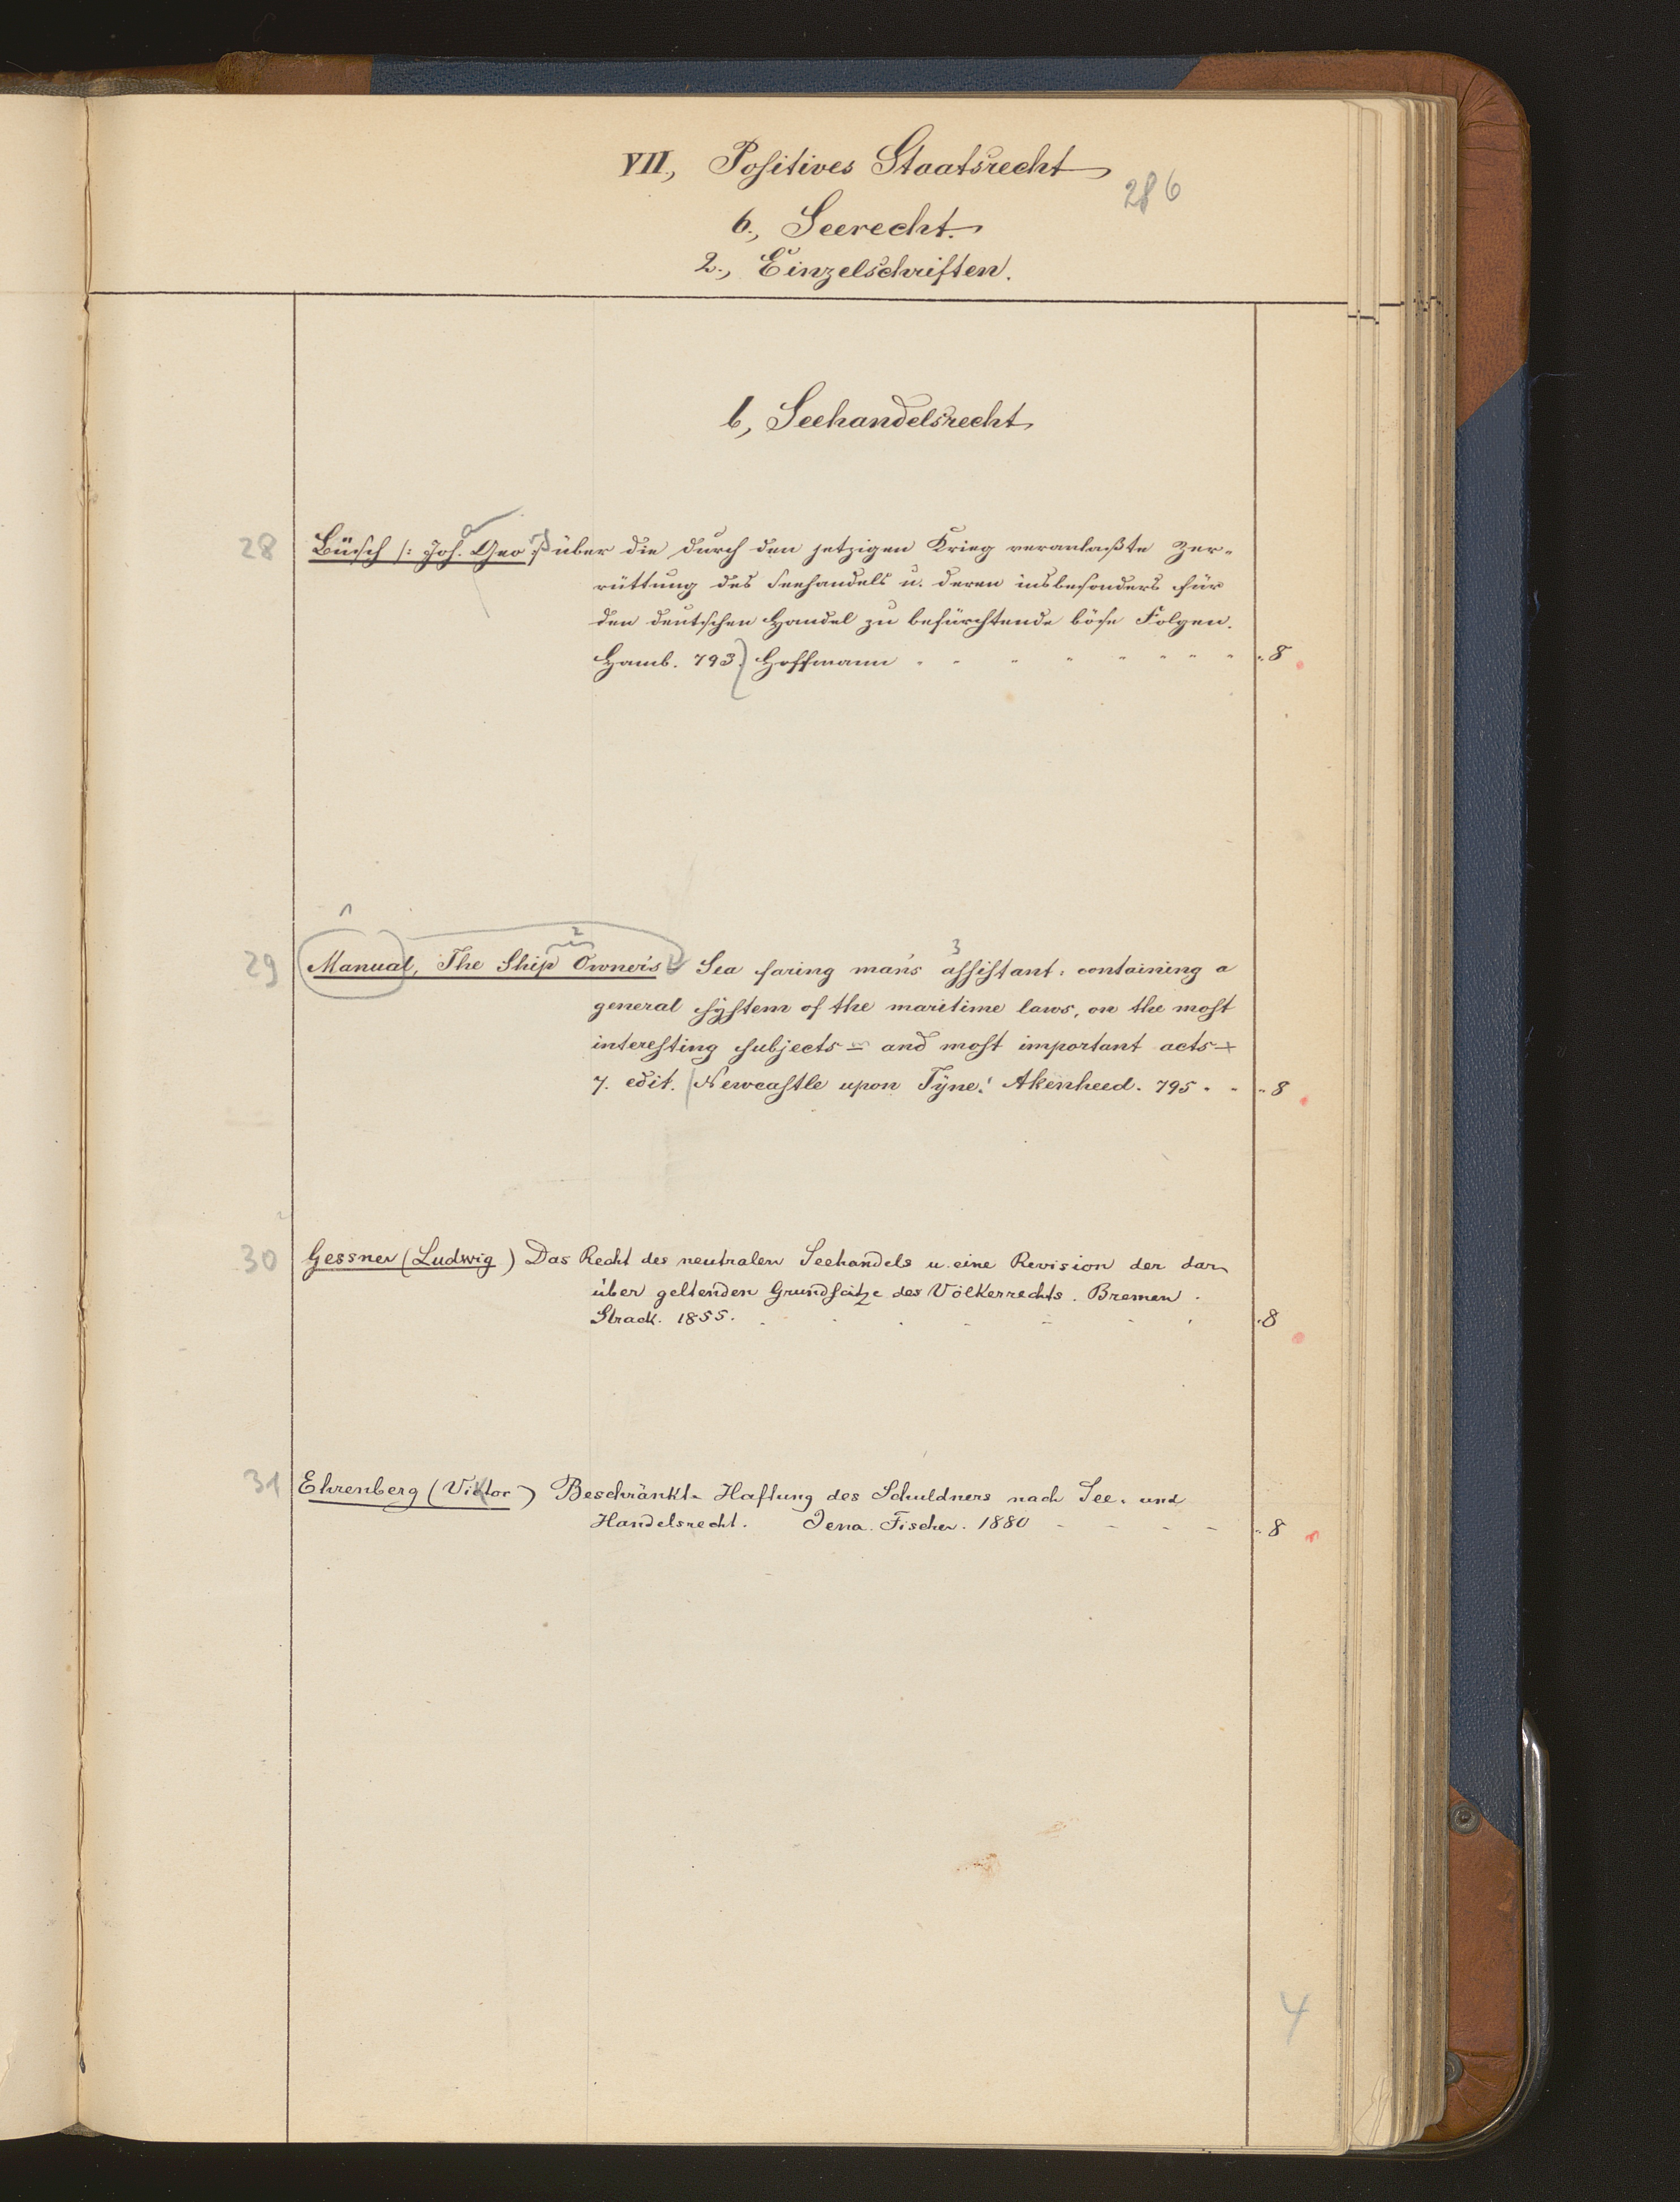 VII., Positives Staatsrecht
286
6., Seerecht.
2., Einzelschriften.
b, Seehandelsrecht
28 Büsch /: Joh. Geo :/ über die durch den jetzigen Krieg veranlaßte Zer-
rüttung des Seehandels u. deren insbesonders für
den deutschen Handel zu befürchtende böse Folgen.
Hamb. 793. Hoffmann 8
1
2
3
29 Manual, The Ship Owner's Sea faring man's assistant: containing a
general system of the maritime laws, on the most
interesting subjects - and most important acts -
7. edit. Newcastle upon Tÿne: Akenheed. 795. 8
30 Gessner (Ludwig) Das Recht des neutralen Seehandels u. eine Revision der dar
über geltenden Grundsätze des Völkerrechts. Bremen.
Strack. 1855. 8
31 Ehrenberg (Viktor) Beschränkte Haftung des Schuldners nach See- und
Handelsrecht. Jena. Fischer. 1880 8
4